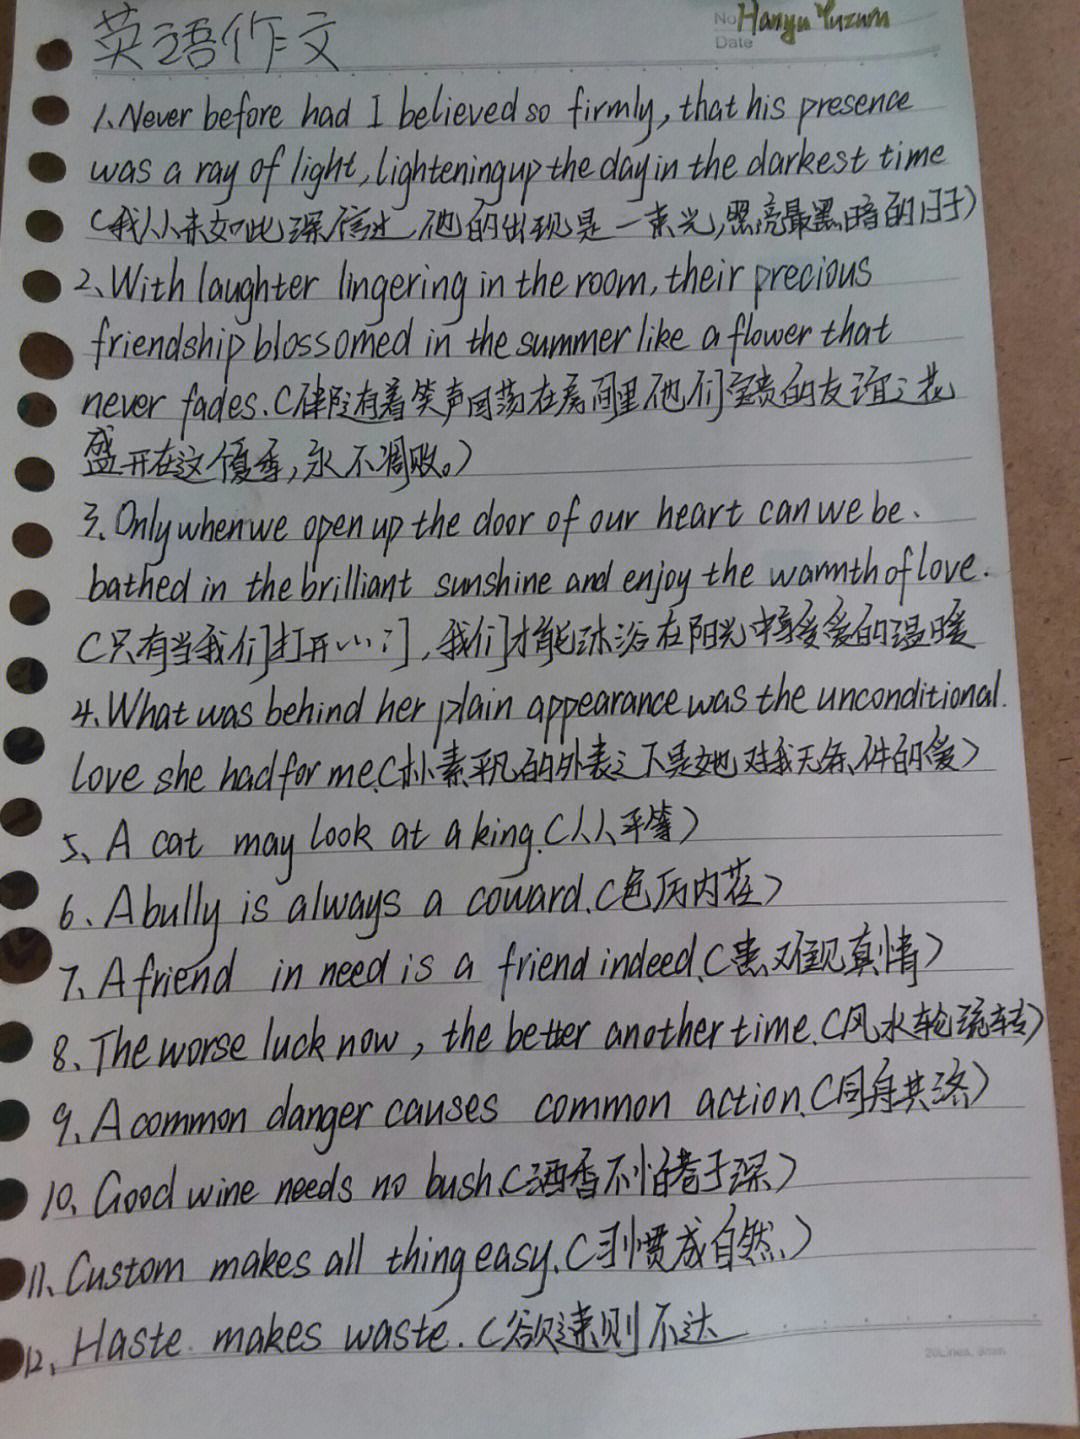 英语作文
No Hanyu Yuzuru
Date
1、Never before had I believed so firmly, that his presence
was a ray of light, lightening up the day in the darkest time
(我从未如此深信过,他的出现是一束光,照亮最黑暗的日子)
2、With laughter lingering in the room, their precious
friendship blossomed in the summer like a flower that
never fades.(伴随有着笑声回荡在房间里他们宝贵的友谊之花
盛开在这个夏季,永不凋败。)
3、Only when we open up the door of our heart can we be.
bathed in the brilliant sunshine and enjoy the warmth of love.
(只有当我们打开心门,我们才能沐浴在阳光中享受爱的温暖
4、What was behind her plain appearance was the unconditional.
love she had for me.(朴素平凡的外表之下是她对我无条件的爱)
5、A cat may look at a king.(人人平等)
6、A bully is always a coward.(色厉内荏)
7、A friend in need is a friend indeed.(患难见真情)
8、The worse luck now, the better another time.(风水轮流转)
9、A common danger causes common action.(同舟共济)
10、Good wine needs no bush.(酒香不怕巷子深)
11、Custom makes all thing easy.(习惯成自然.)
12、Haste makes waste.(欲速则不达